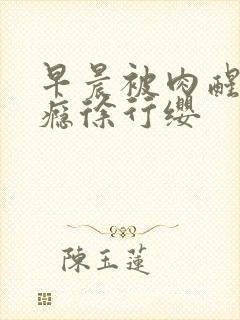 早晨被肉醒
瘾徐行缨
陳玉蓮